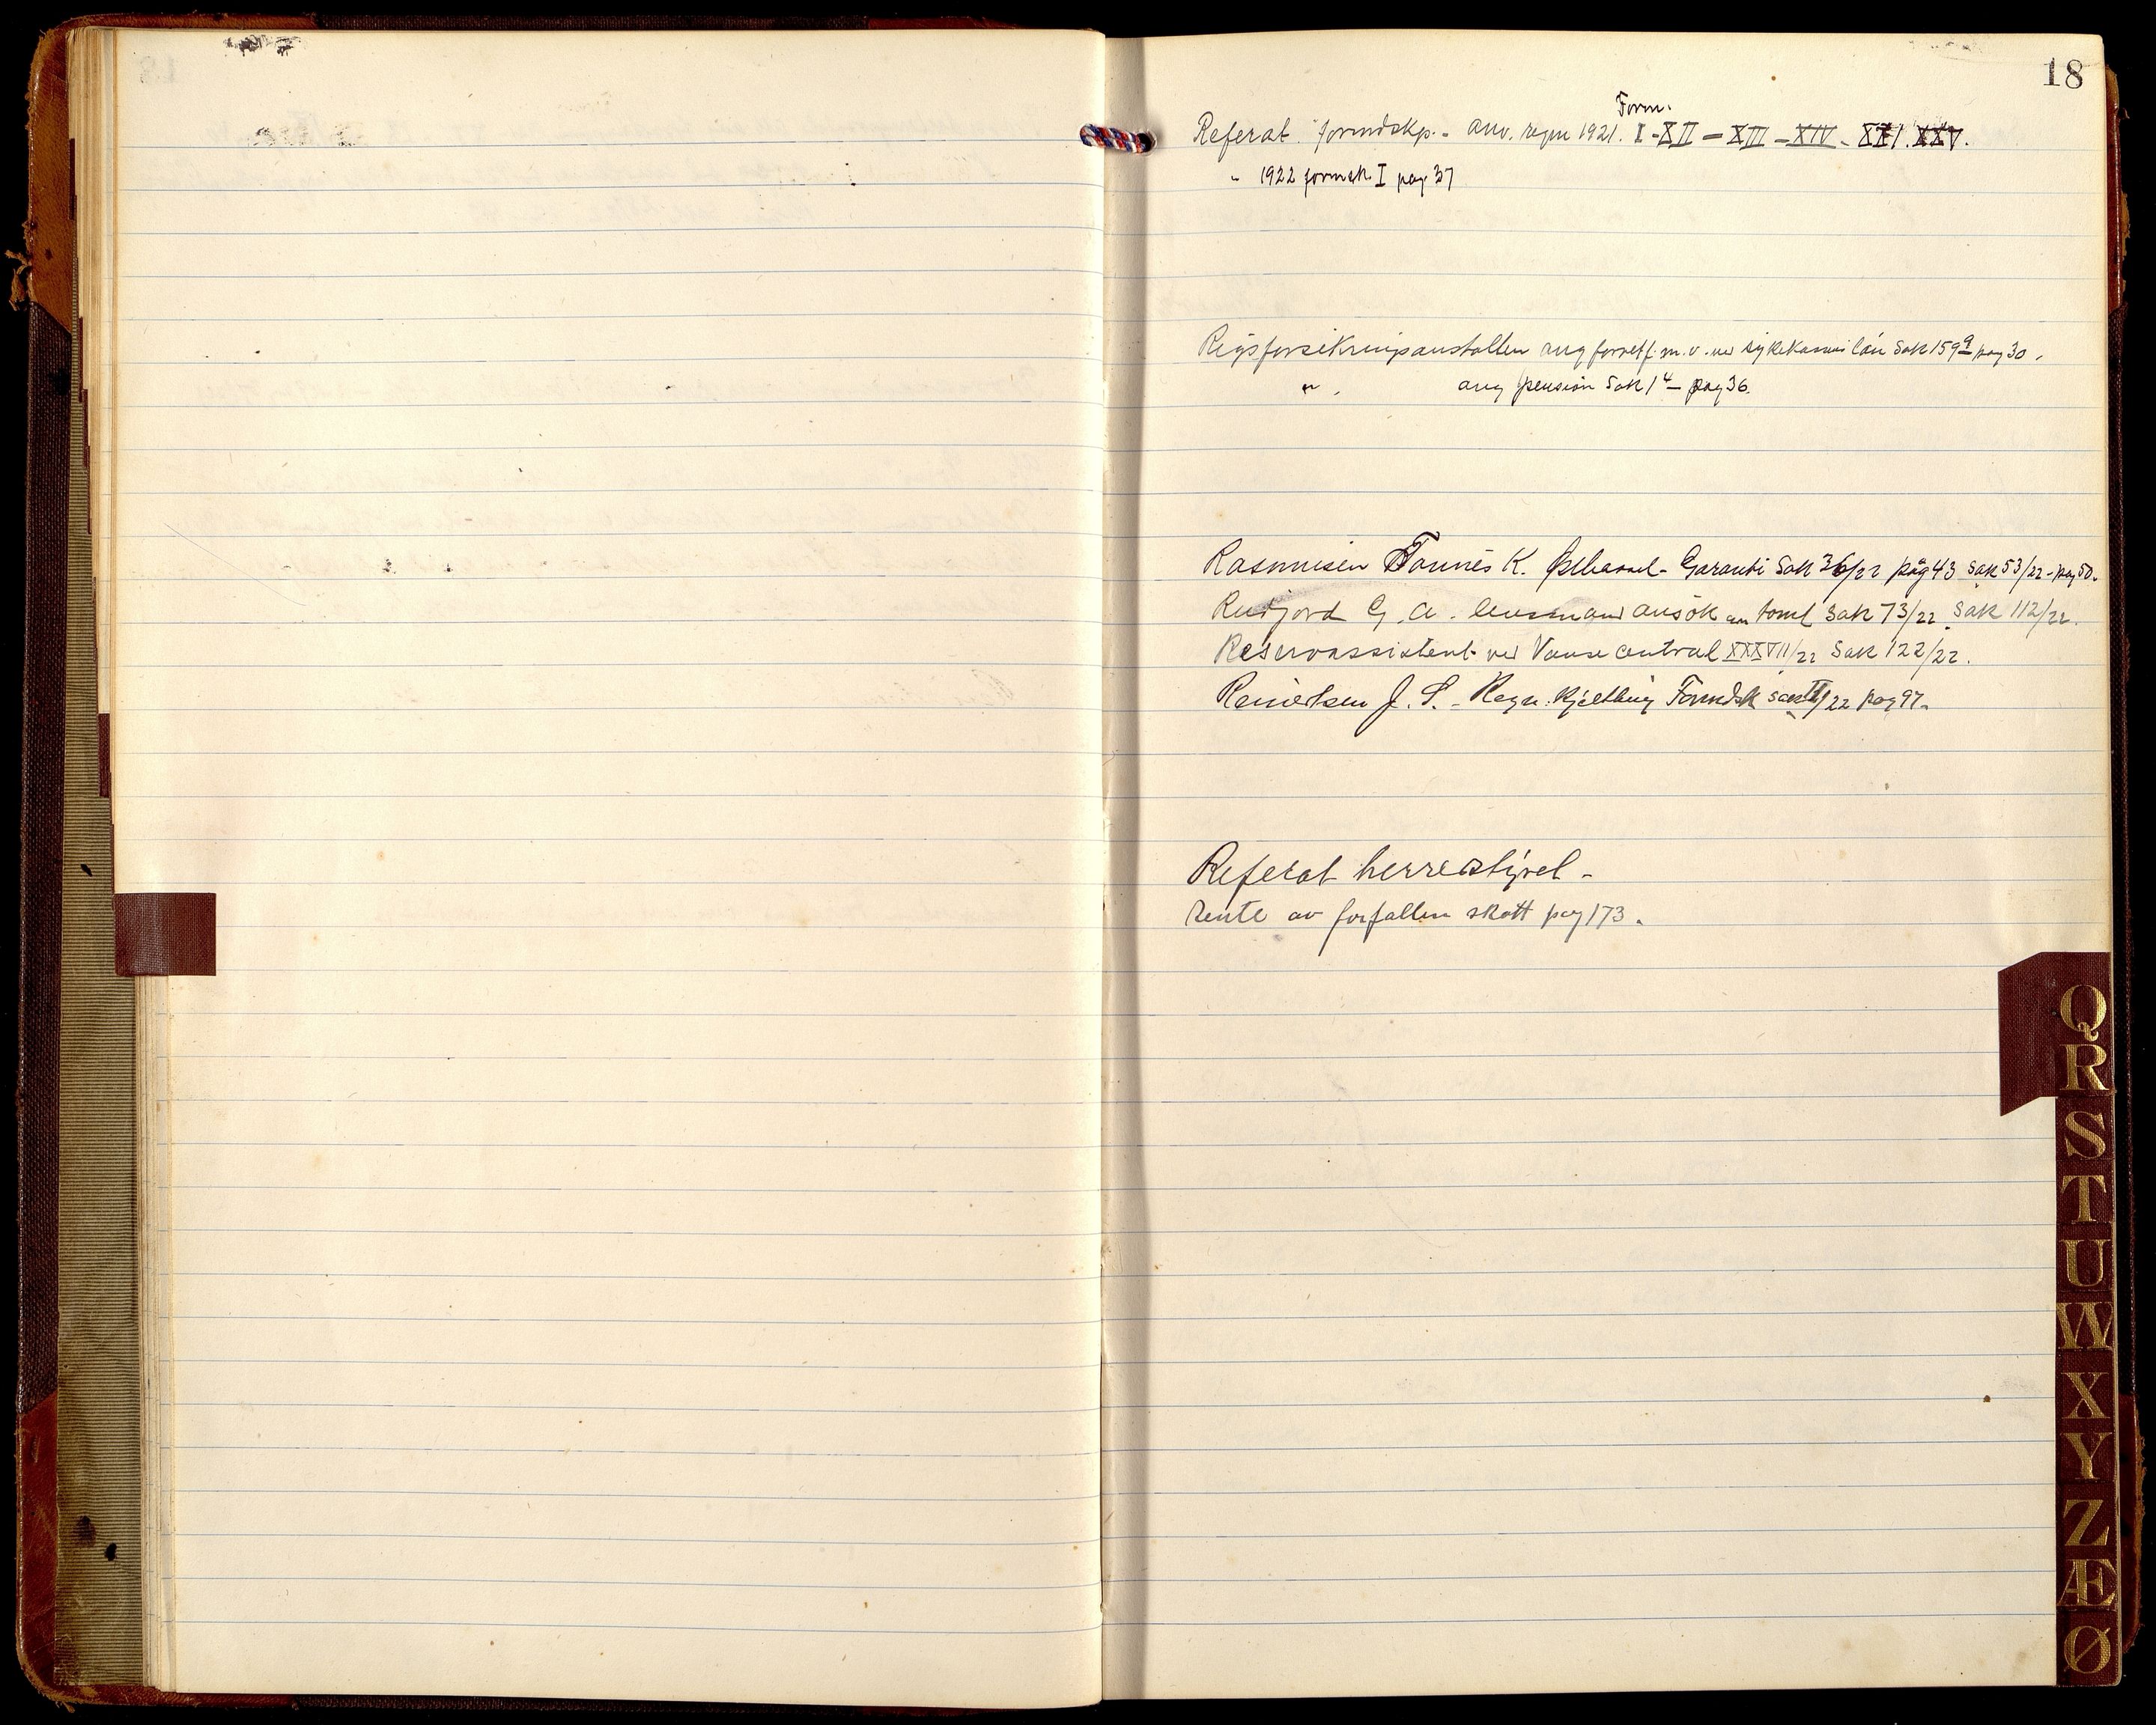 18
Form.
Referat formdskp. - anv. regn 1921. I - XII - XIII - XIV - XXI. XXV.
" 1922 formsk. I pag 37
Rigsforsikringsanstalten ang forretf. m. v. ved sykekassens lån Sak 159 a pag 30.
" ang pension Sak 1 4 - pag 36.
Rasmusen Tønnes K. Østhassel - Garanti Sak 36/22 pag 43 Sak 53/22 - pag 50.
Rudjord G. A. lensmand ansøk om tomt Sak 73/22 Sak 112/22.
Reservassistent ved Vanse central XXXVII/22 Sak 122/22.
Reinertsen J. S. - Regn. Formdsk sak /22 pag 97.
Referat herredstyret -
Rente av forfallen skatt pag 173.
Q
R
S
T
U
W
X
Y
Z
Æ
Ø